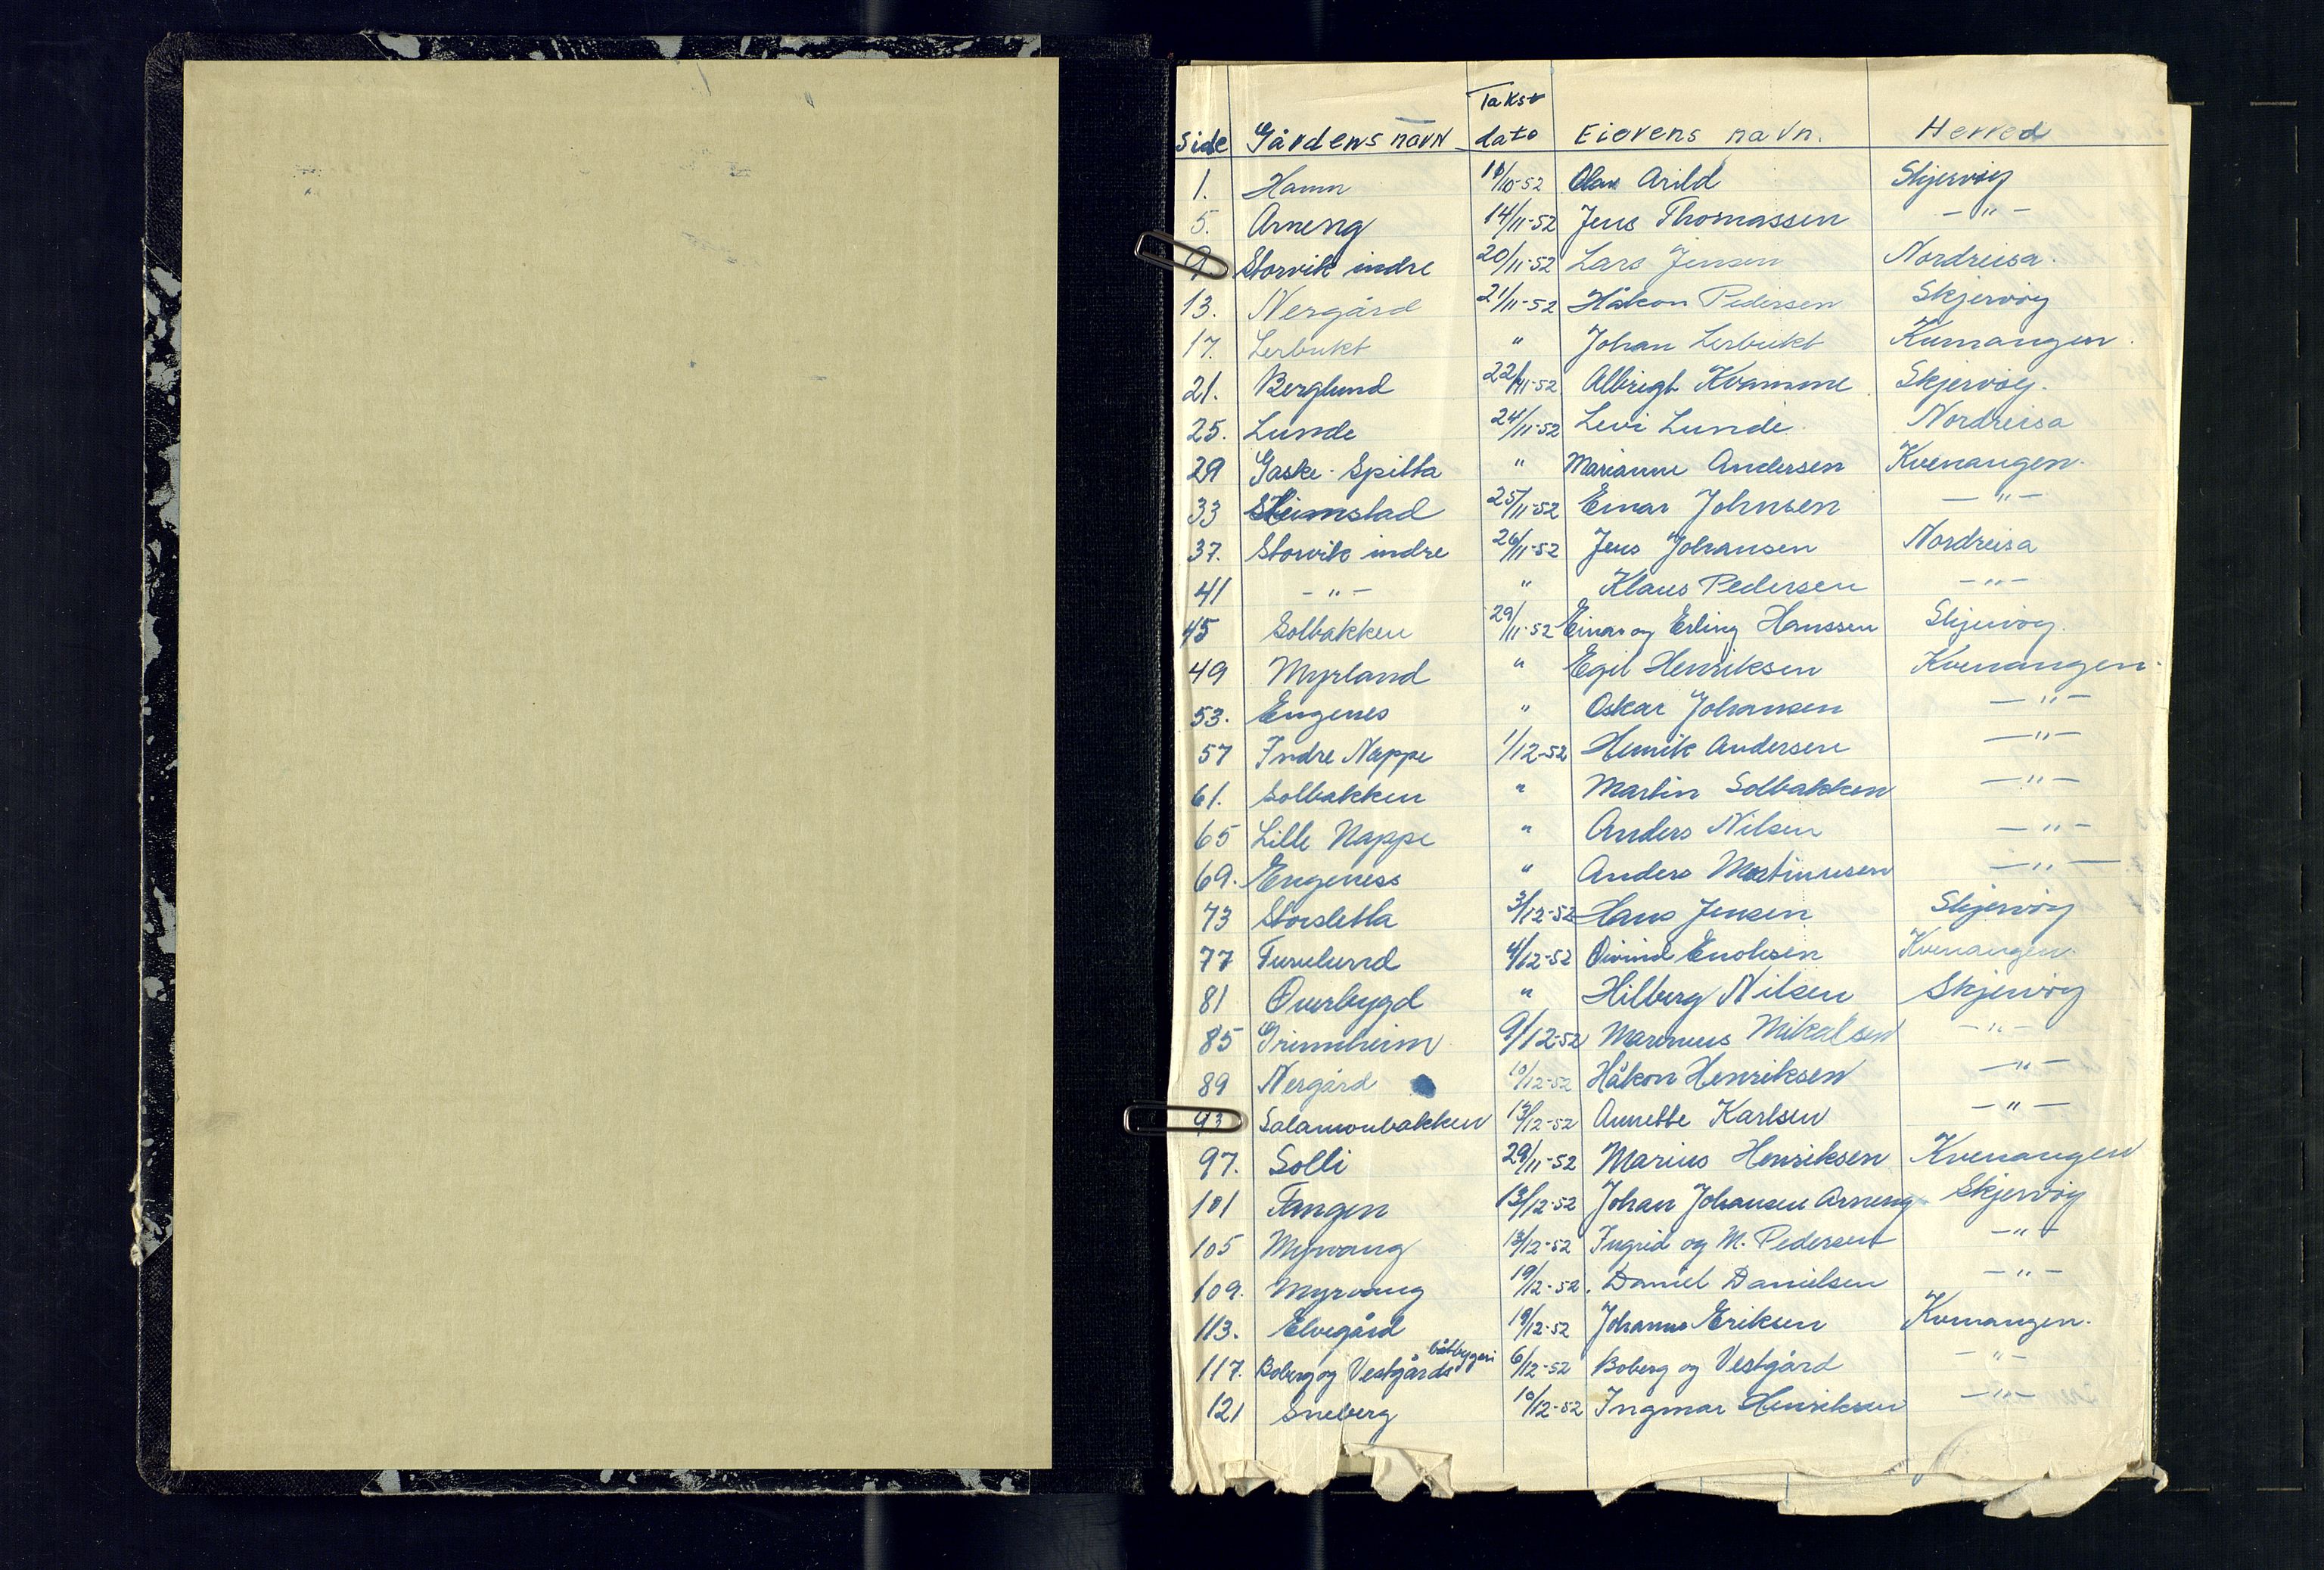 Takst
Side Gårdens navn dato Eierens navn. Herred
1. Hamn 11/10-52 Olav Arild Skjervøy
5. Arneng 14/11-52 Jens Thomassen — " —
9 Storvik indre 20/11-52 Lars Jensen Nordreisa.
13. Nergård 21/11-52 Håkon Pedersen Skjervøy
17. Lerbukt " Johan Lerbukt Kvenangen.
21. Berglund 22/11-52 Albrigt Kvamme Skjervøy.
25. Lunde 24/11-52 Levi Lunde. Nordreisa
29 Gaske-Spilta " Marianne Andersen Kvenangen.
33 Heimstad 25/11-52 Einar Johnsen — " —
37. Storvik indre 26/11-52 Jens Johansen Nordreisa
41 — " — " Klaus Pedersen — " —
45 Solbakken 29/11-52 Einar og Erling Hanssen Skjervøy.
49 Myrland " Egil Henriksen Kvenangen.
53. Engenes " Oskar Johansen — " —
57 Indre Nappe 1/12-52 Henrik Andersen — " —
61. Solbakken " Martin Solbakken — " —
65 Lille Nappe " Anders Nilsen — " —
69. Engeness " Anders Martinusen — " —
73 Storsletta 3/12-52 Hans Jensen Skjervøy
77 Furulund 4/12-52 Øivind Enoksen Kvenangen.
81 Overbygd " Hilberg Nilsen Skjervøy
85 Grinnheim 9/12-52 Marenius Mikalsen — " —
89 Nergård 10/12-52 Håkon Henriksen — " —
93 Salamonbakken 13/12-52 Annette Karlsen — " —
97. Solli 29/11-52 Marius Henriksen Kvenangen
101 Tangen 13/12-52 Johan Johansen Arneng Skjervøy
105 Myrvang 13/12-52 Ingrid og M. Pedersen — " —
109. Myrvang 19/12-52. Daniel Danielsen — " —
113. Elvegård 19/12-52 Johannes Eriksen Kvenangen.
117. Boberg og Vestgårds båtbyggeri 6/12-52 Boberg og Vestgård — " —
121 Sneberg 10/12-52 Ingmar Henriksen — " —